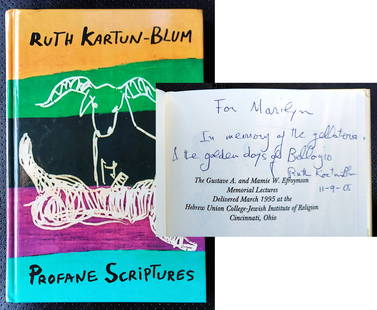 RUTH KARTUN-BLUM
PROFANE SCRIPTURES
For Marilyn
In memory of the
& the golden days of Bellagio
Ruth Kartun-Blum
11-9-05
The Gustave A. and Mamie W. Efroymson
Memorial Lectures
Delivered March 1995 at the
Hebrew Union College-Jewish Institute of Religion
Cincinnati, Ohio